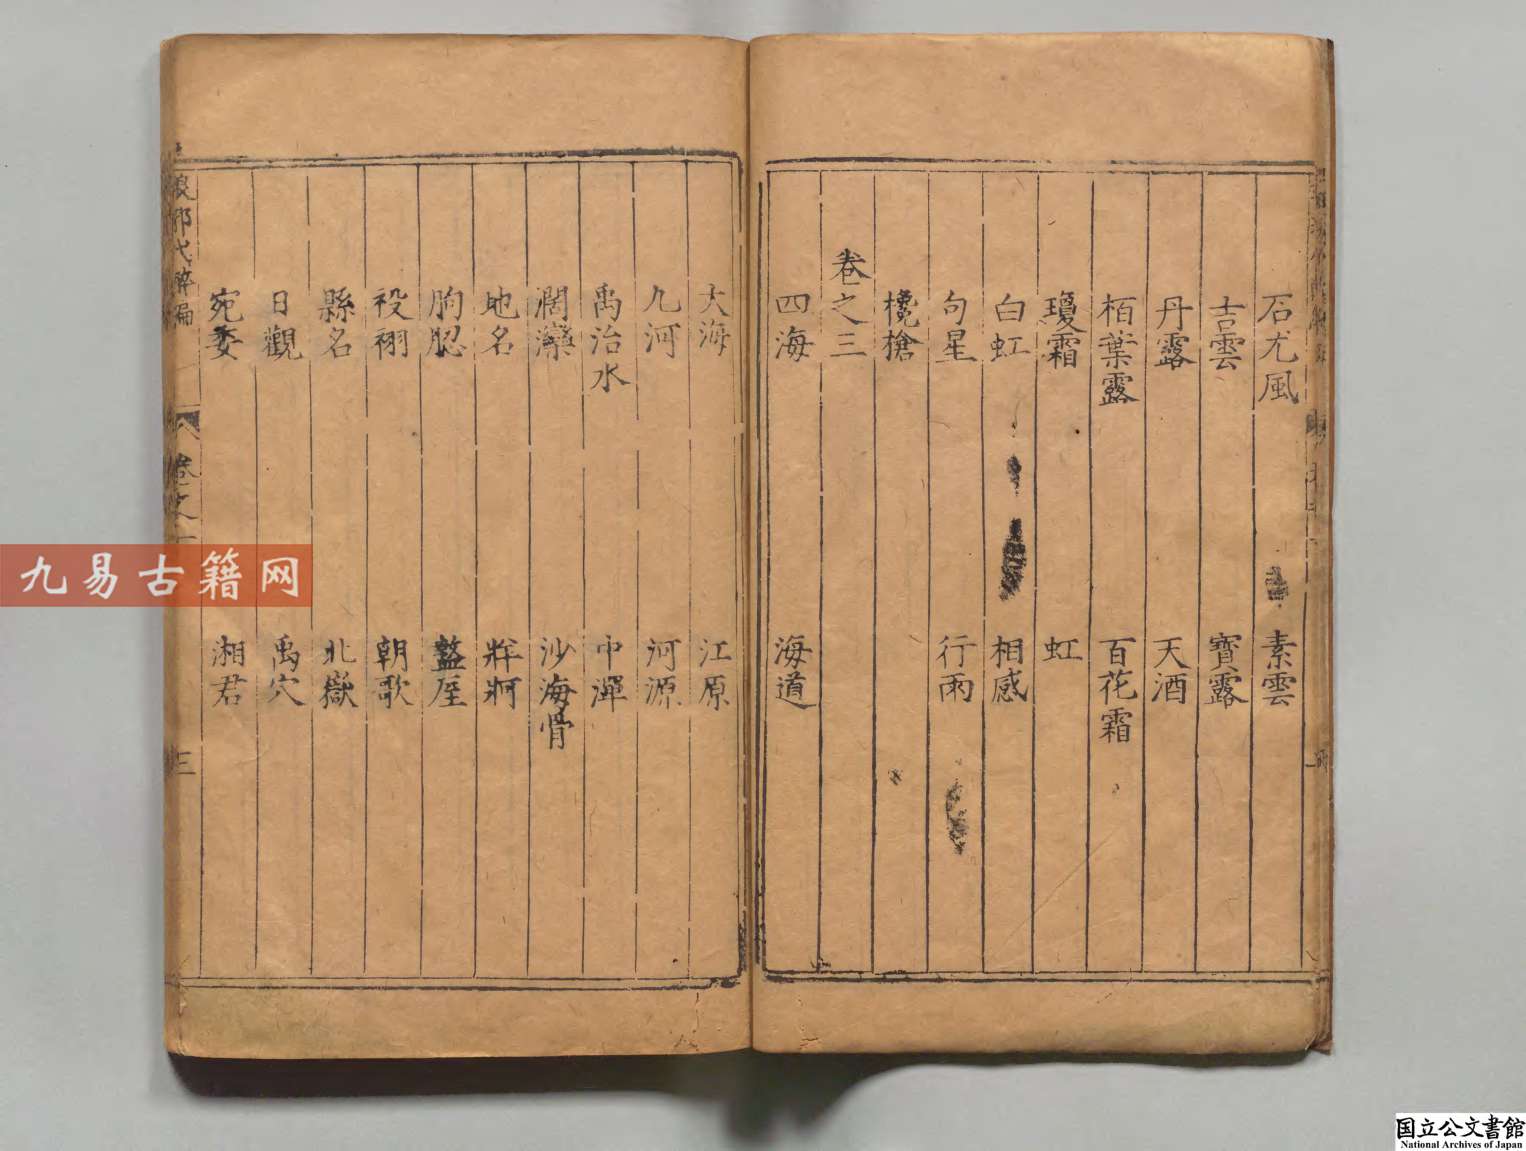 石尤風 素雲
吉雲 寶露
丹露 天酒
栢葉露 百花霜
瓊霜 虹
白虹 相感
句星 行雨
欃槍
卷之三
四海 海道
大海 江原
九河 河源
禹治水 中潬
濶灤 沙海骨
地名 牂牁
朐䏰 盩厔
祋祤 朝歌
縣名 北嶽
日觀 禹穴
宛委 湘君
琅邪代醉編
三
九易古籍网
国立公文書館
National Archives of Japan